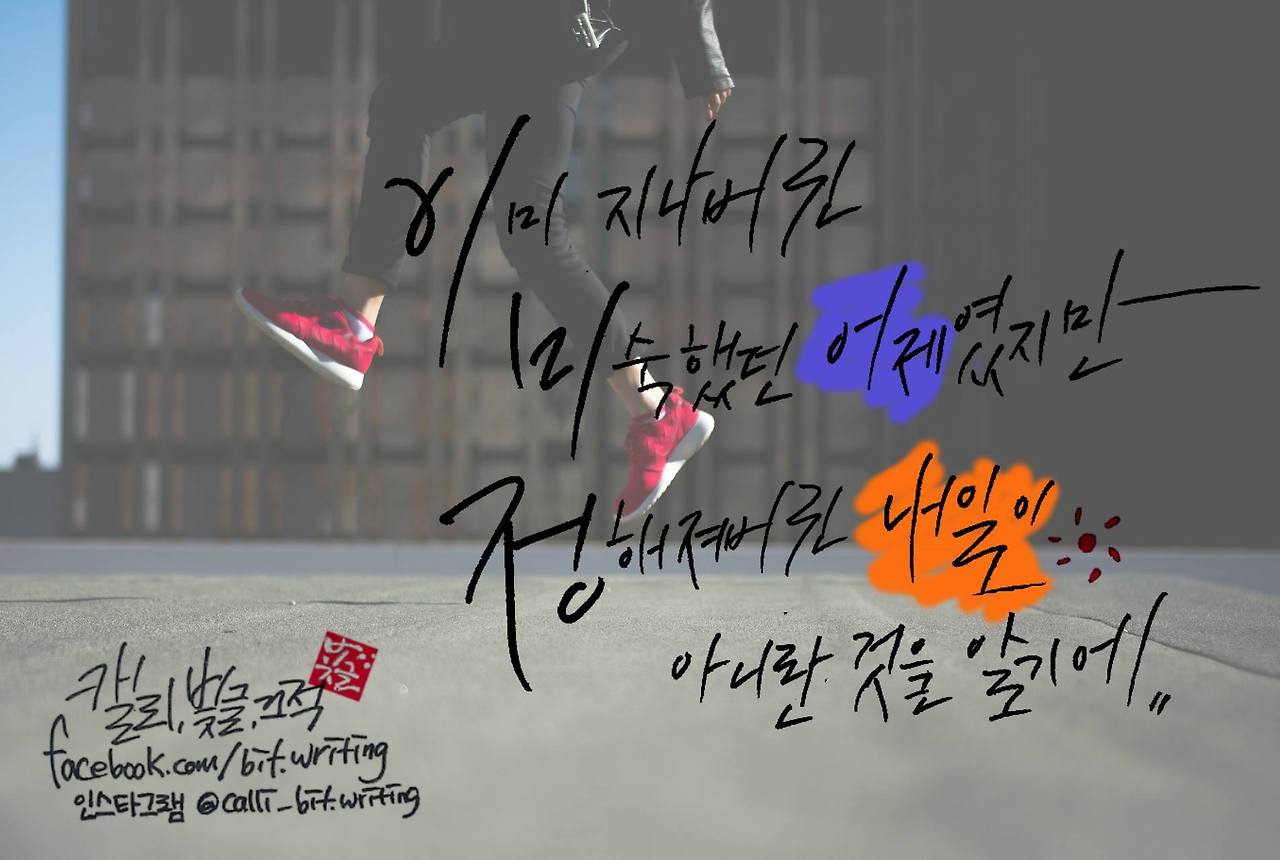 이미 지나버린
미숙했던 어제였지만
정해져버린 내일이
아니란 것을 알기에
캘리, 빛글, 끄적
facebook.com/bit.writing
인스타그램 @calli_bit.writing
빛글